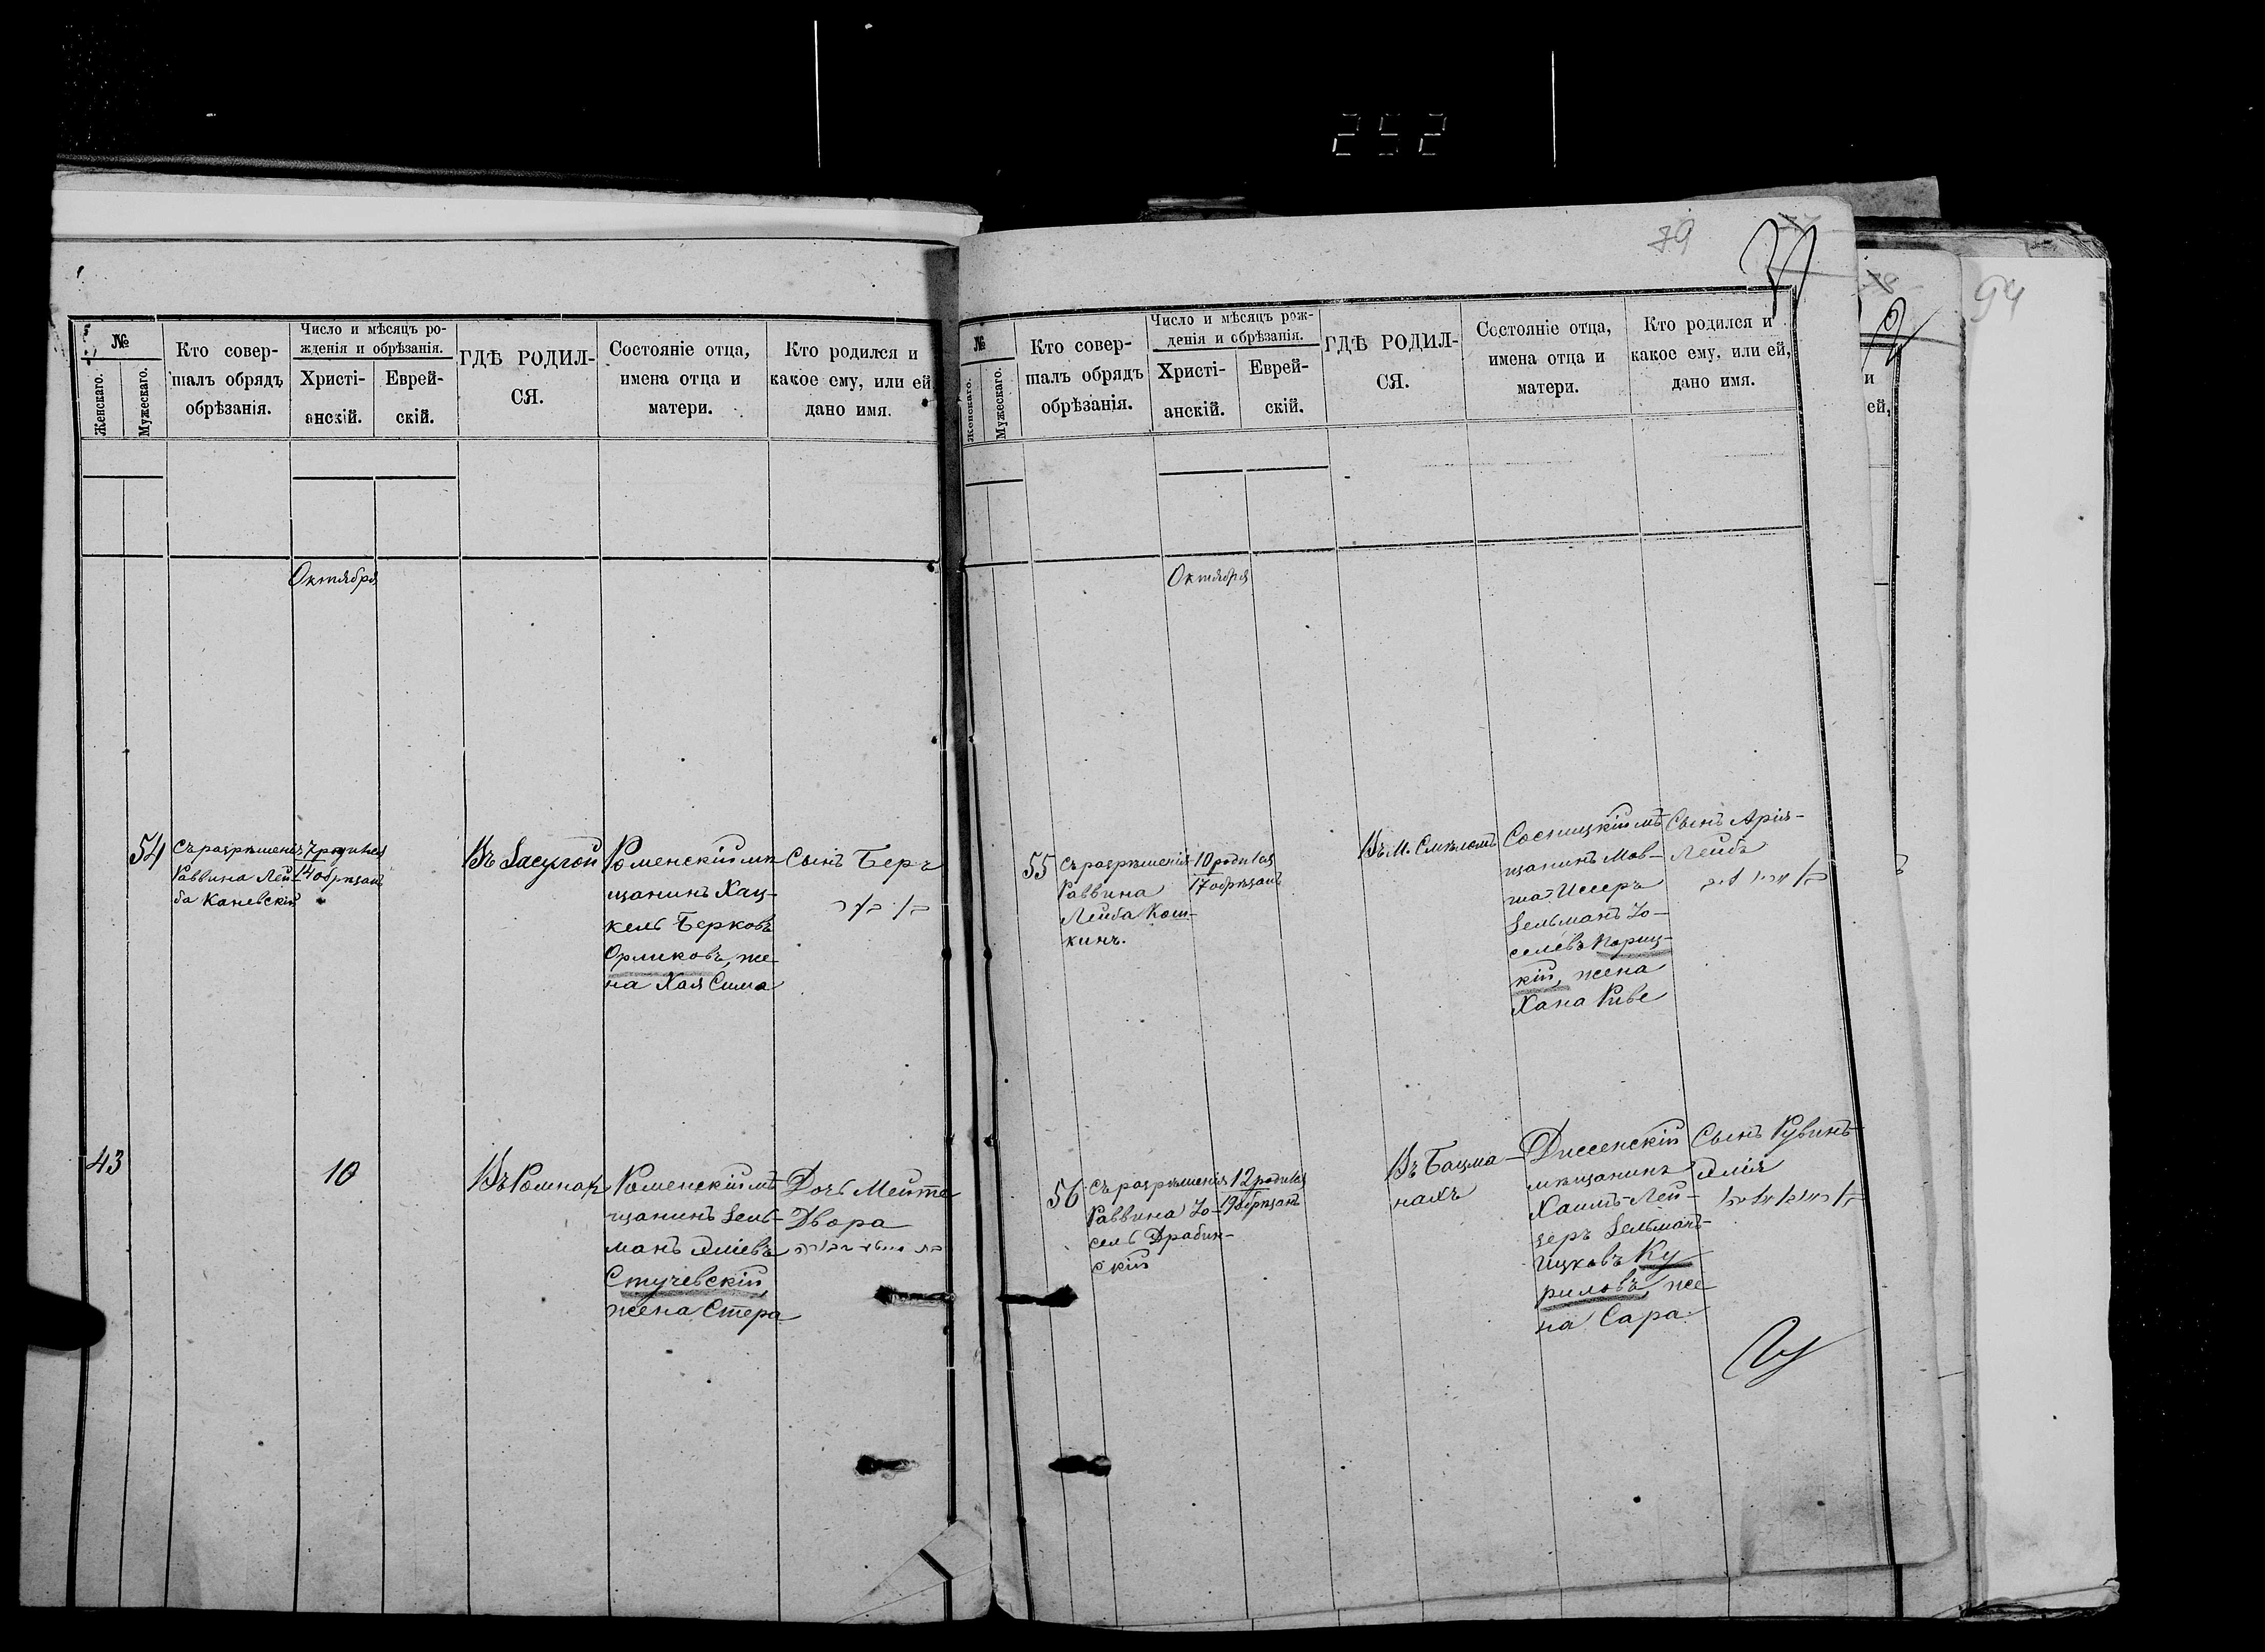 252
79
94
№
Женскаго.
Мужескаго.
Кто совер-
шалъ обрядъ
обрѣзанія.
Число и мѣсяцъ ро-
жденія и обрѣзанія.
Христі-
анскій.
Еврей-
скій.
ГДѢ РОДИЛ-
СЯ.
Состояніе отца,
имена отца и
матери.
Кто родился и
какое ему, или ей,
дано имя.
Октября
54
Съ разрѣшенія
Раввина Лей-
ба Каневскій
7 родился
14 обрѣзанъ
Въ Засулѣ
Роменскій мѣ
щанинъ Хац-
кель Берковъ
Орликовъ, же
на Хая Сима
Сынъ Беръ
43
10
Въ Ромнахъ
Роменскій мѣ
щанинъ Зель-
манъ Эліевъ
Стучевскій,
жена Стера
Дочь Мейте
Двора
№
Женскаго.
Мужескаго.
Кто совер-
шалъ обрядъ
обрѣзанія.
Число и мѣсяцъ рож-
денія и обрѣзанія.
Христі-
анскій.
Еврей-
скій.
ГДѢ РОДИЛ-
СЯ.
Состояніе отца,
имена отца и
матери.
Кто родился и
какое ему, или ей,
дано имя.
Октября
55
Съ разрѣшенія
Раввина
Лейба Кош-
кинъ.
10 родился
17 обрѣзанъ
Въ М. Смѣломъ
Сосницкій мѣ
щанинъ Мов-
ша-Исеръ
Зельманъ Іо-
селевъ Кориц-
кій, жена
Хана Риве
Сынъ Арія-
Лейбъ
56
Съ разрѣшенія
Раввина Іо-
сель Драбин-
скій
12 родился
19 обрѣзанъ
Въ Бацма-
нахъ
Диссенскій
мѣщанинъ
Хаимъ-Лей-
зеръ Зельманъ-
Ицковъ Ку
риловъ, же
на Сара
Сынъ Рувинъ-
Элія
и
ей,